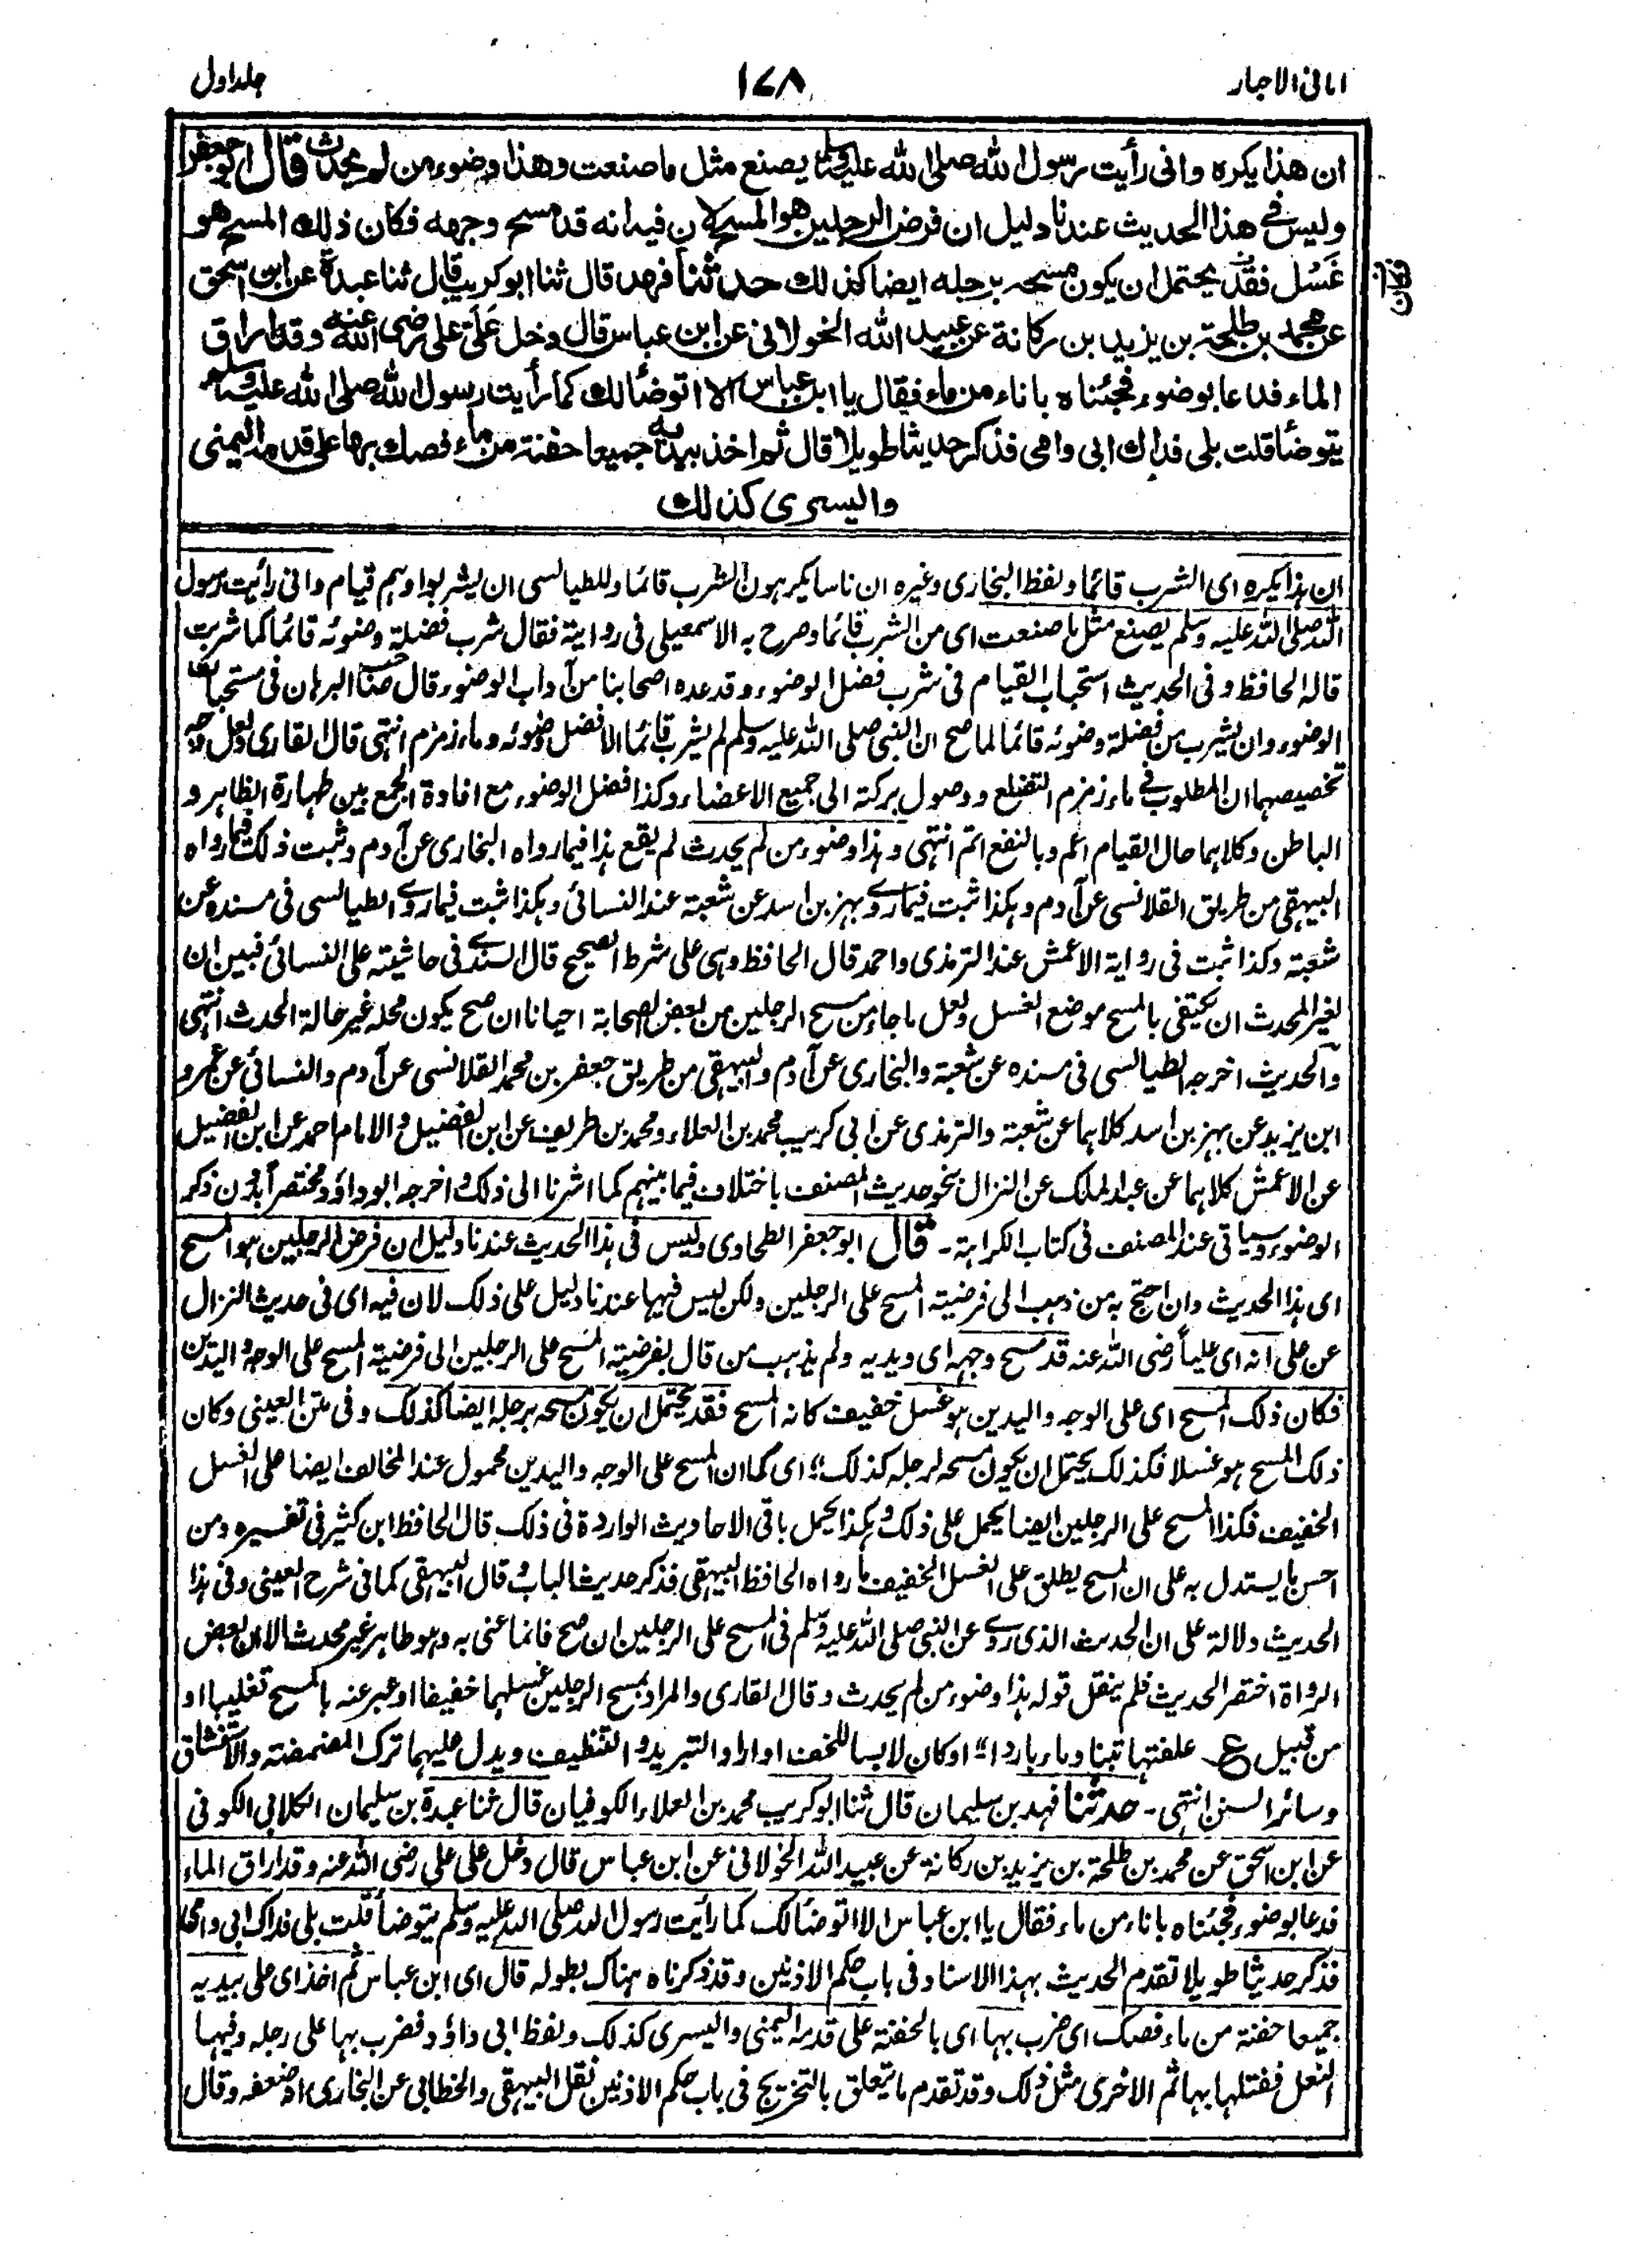 امانی الاحبار
۱۷۸
جلد اول
ان هذا يكره وانی رأيت رسول الله صلی الله عليه وسلم يصنع مثل ما صنعت وهذا وضوء من لم يحدث قال ابو جعفر
وليس فے هذا الحديث عندنا دليل ان فرض الرجلين هو المسح لان فيه انه قد مسح وجهه فكان ذلك المسح هو
غَسْل فقد يحتمل ان يكون مسحه برجله ايضا كذلك حدثنا فهد قال ثنا ابو كريب قال ثنا عبدة عن ابن اسحق
عن محمد بن طلحة بن يزيد بن ركانة عن عبيد الله الخولانی عن ابن عباس قال دخل عَلَیَّ علی رضی الله عنه وقد اراق
الماء فدعا بوضوء فجئناه باناء من ماء فقال يا ابن عباس الا اتوضأ لك كما رأيت رسول الله صلی الله عليه وسلم
يتوضأ قلت بلی فداك ابی وامی فذكر حديثا طويلا قال ثم اخذ بيديه جميعا حفنة من ماء فصك بها علی قدمه اليمنی
واليسری كذلك
ان هذا يكره ای الشرب قائما ولفظ البخاری وغيره ان ناسا يكرهون الشرب قائما وللطيالسی ان يشربوا وهم قيام وانی رأيت رسول
الله صلی الله عليه وسلم يصنع مثل ما صنعت ای من الشرب قائما وصرح به الاسمعيلی فی روايته فقال شرب فضلة وضوئه قائما كما شربت
قاله الحافظ وفی الحديث استحباب القيام فی شرب فضل الوضوء وقد عده اصحابنا من آداب الوضوء وقال صاحب البرهان فی مستحبات
الوضوء وان يشرب من فضلة وضوئه قائما لما صح ان النبی صلی الله عليه وسلم لم يشرب قائما الا فضل وضوئه وماء زمزم انتهی قال القاری ولعل وجه
تخصيصهما ان المطلوب فے ماء زمزم التضلع ووصول بركته الی جميع الاعضاء وكذا فضل الوضوء مع افادة الجمع بين طهارة الظاهر و
الباطن وكلاهما حال القيام اعم وبالنفع اتم انتهی وهذا وضوء من لم يحدث لم يقع هذا فيما رواه البخاری عن آدم وثبت ذلك فيما رواه
البيهقی من طريق القلانسی عن آدم وهكذا ثبت فيما روے بهز بن اسد عن شعبة عند النسائی وهكذا ثبت فيما روے الطيالسی فی مسنده عن
شعبة وكذا ثبت فی رواية الاعمش عند الترمذی واحمد قال الحافظ وهی علی شرط الصحيح قال السندے فی حاشيته علی النسائی فبين ان
لغير المحدث ان يكتفی بالمسح موضع الغسل ولعل ما جاء من مسح الرجلين من بعض الصحابة احيانا ان صح يكون محله غير حالة الحدث انتهی
والحديث اخرجه الطيالسی فی مسنده عن شعبة والبخاری عن آدم والبيهقی من طريق جعفر بن محمد القلانسی عن آدم والنسائی عن عمرو
ابن يزيد عن بهز بن اسد كلاهما عن شعبة والترمذی عن ابی كريب محمد بن العلاء ومحمد بن طريف عن ابن الفضيل والامام احمد عن ابن الفضيل
عن الاعمش كلاهما عن عبد الملك عن النزال بنحو حديث المصنف باختلاف فيما بينهم كما اشرنا الی ذلك واخرجه ابو داؤد مختصرا بدون ذكر
الوضوء وسياتی عند المصنف فی كتاب الكراهة۔ قال ابو جعفر الطحاوی وليس فی هذا الحديث عندنا دليل ان فرض الرجلين هو المسح
ای هذا الحديث وان احتج به من ذهب الی فرضية المسح علی الرجلين ولكن ليس فيها عندنا دليل علی ذلك لان فيه ای فی حديث النزال
عن علی انه ای علياً رضی الله عنه قد مسح وجهه ای ويديه ولم يذهب من قال بفرضية المسح علی الرجلين الی فرضية المسح علی الوجه واليدين
فكان ذلك المسح ای علی الوجه واليدين هو غسل خفيف كانه المسح فقد يحتمل ان يكون مسحه برجله ايضا كذلك وفی متن العينی وكان
ذلك المسح هو غسلا فكذلك يحتمل ان يكون مسحه لرجله كذلك؛؛ ای كما ان المسح علی الوجه واليدين محمول عند المخالف ايضا علی الغسل
الخفيف فكذا المسح علی الرجلين ايضا يحمل علی ذلك وهكذا يحمل باقی الاحاديث الواردة فی ذلك قال الحافظ ابن كثير فی تفسيره ومن
احسن ما يستدل به علی ان المسح يطلق علی الغسل الخفيف ما رواه الحافظ البيهقی فذكر حديث الباب وقال البيهقی كما فی شرح العينی وفی هذا
الحديث دلالة علی ان الحديث الذی روے عن النبی صلی الله عليه وسلم فی المسح علی الرجلين ان صح فانما عنی به وهو طاهر غير محدث الا ان بعض
الرواة اختصر الحديث فلم ينقل قوله هذا وضوء من لم يحدث وقال القاری والمراد بمسح الرجلين غسلهما خفيفا او عبر عنه بالمسح تغليبا او
من قبيل ع علفتها تبنا وماء باردا؛؛ او كان لابسا للخف او اراد التبريد والتنظيف ويدل عليهما ترك المضمضة والاستنشاق
وسائر السنن انتهی۔ حدثنا فهد بن سليمان قال ثنا ابو كريب محمد بن العلاء الكوفيان قال ثنا عبدة بن سليمان الكلابی الكوفی
عن ابن اسحق عن محمد بن طلحة بن يزيد بن ركانة عن عبيد الله الخولانی عن ابن عباس قال دخل علی علی رضی الله عنه وقد اراق الماء
فدعا بوضوء فجئناه باناء من ماء فقال يا ابن عباس الا اتوضأ لك كما رأيت رسول الله صلی الله عليه وسلم يتوضأ قلت بلی فداك ابی وامی
فذكر حديثا طويلا تقدم الحديث بهذا الاسناد فی باب حكم الاذنين وقد ذكرناه هناك بطوله قال ای ابن عباس ثم اخذ ای علی بيديه
جميعا حفنة من ماء فصك ای ضرب بها ای بالحفنة علی قدمه اليمنی واليسری كذلك ولفظ ابی داؤد فضرب بها علی رجله وفيها
النعل ففتلها بها ثم الاخری مثل ذلك وقد تقدم ما يتعلق بالتخريج فی باب حكم الاذنين نقل البيهقی والخطابی عن البخاری انه ضعفه وقال